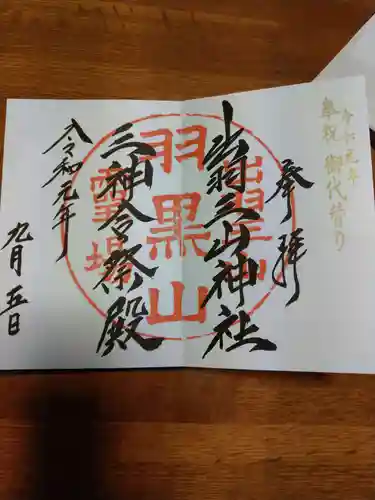 令和元年
奉祝 御代替り
奉拝
出羽三山神社
三神合祭殿
令和元年
九月五日
出羽三山
羽黒山
霊場